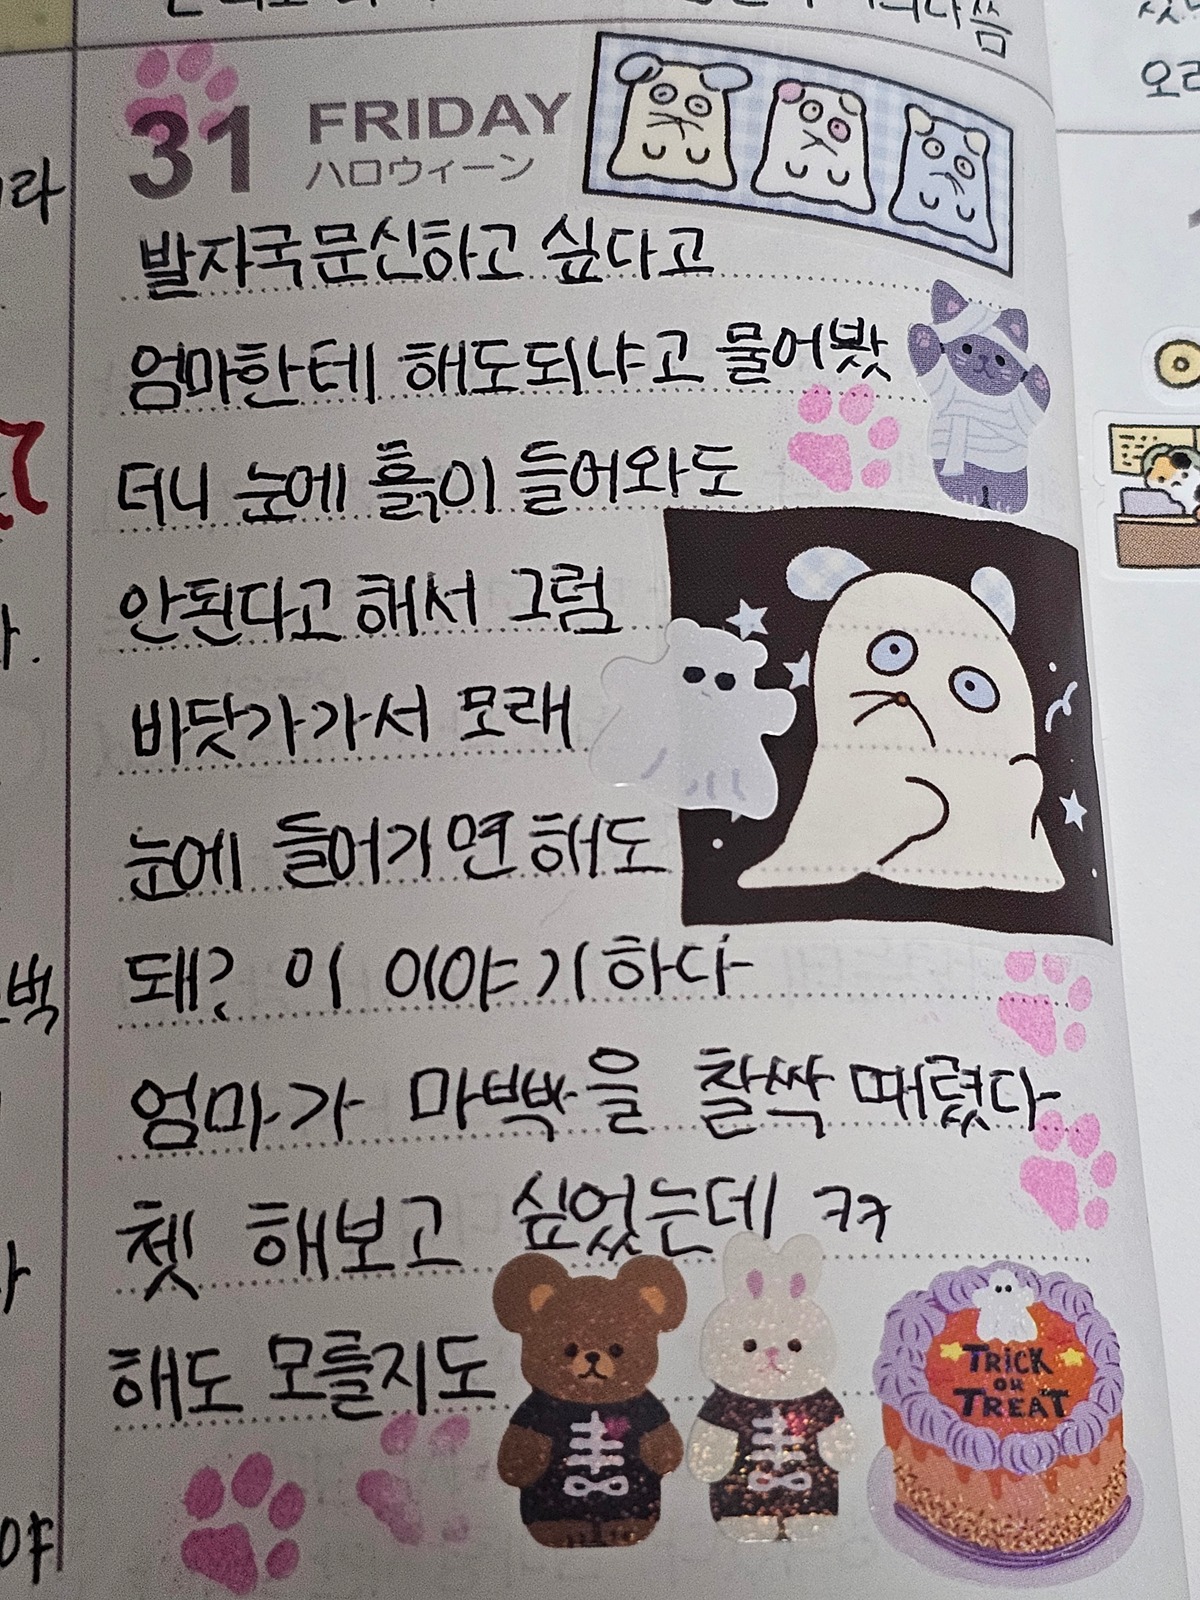 31 FRIDAY
ハロウィーン
발자국문신하고 싶다고
엄마한테 해도되냐고 물어봤
더니 눈에 흙이 들어와도
안된다고해서 그럼
바닷가가서 모래
눈에 들어가면해도
돼? 이 이야기하다
엄마가 마빡을 찰싹때렸다
쳇 해보고 싶었는데 ㅋㅋ
해도 모를지도
TRICK
OR
TREAT
오
라
벅
야